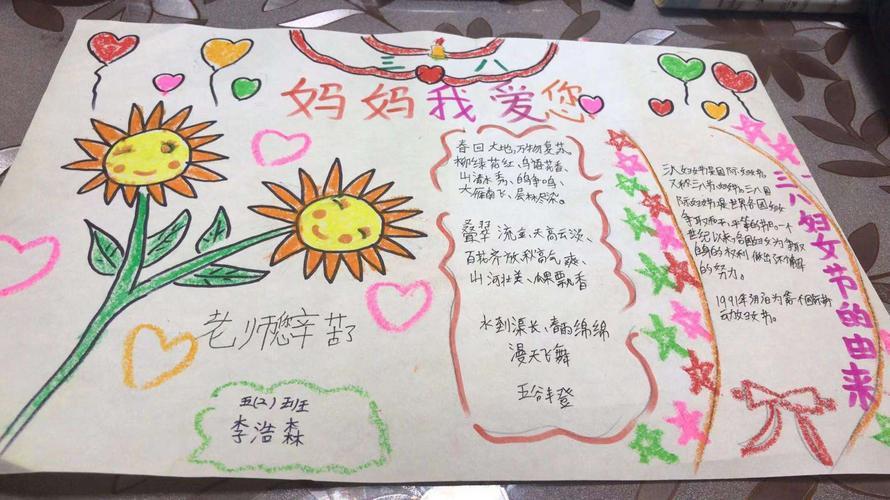 三八
妈妈我爱您
春回大地,万物复苏、
柳绿花红、鸟语花香、
山清水秀、
大雁南飞、层林尽染。
叠翠流金、天高云淡、
百花齐放、秋高气爽、
山河壮美、瓜果飘香
水到渠长、春雨绵绵
漫天飞舞
五谷丰登
老师您辛苦了
五(2)班
李浩森
三八妇女节的由来
三八妇女节是国际妇女节
又称三八节、妇女节、三八国
际妇女节是世界各国妇女
争取和平、平等的节日。一个
世纪以来,各国妇女为争取
自身的权利做出不懈
的努力。